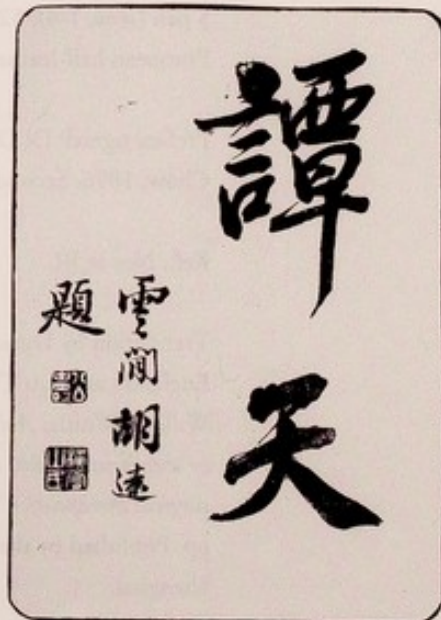 譚天
雲間胡遠
題